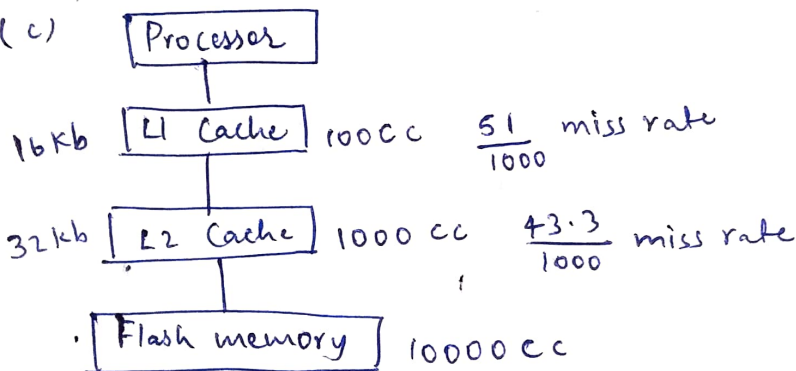 (c)
Processor
16Kb L1 Cache 100CC 51/1000 miss rate
32kb L2 Cache 1000 CC 43.3/1000 miss rate
Flash memory 10000 CC